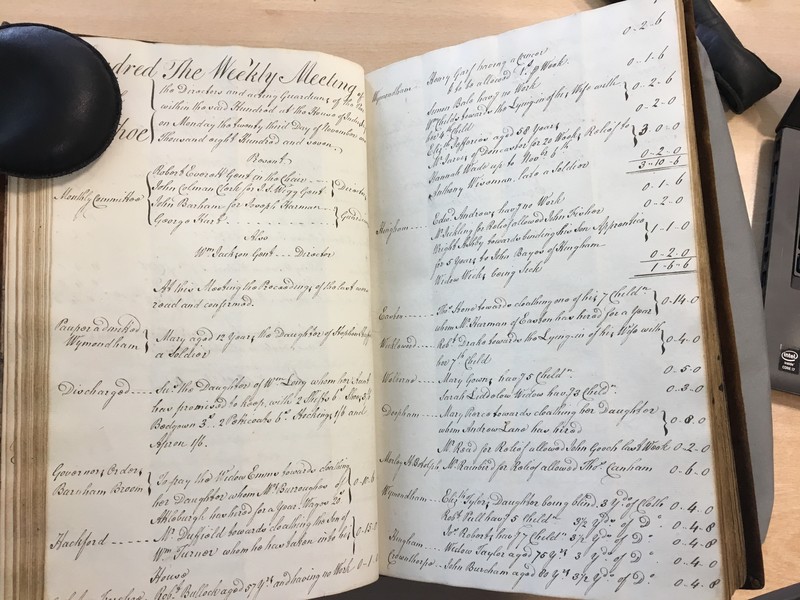 dred The Weekly Meeting of
the Directors and acting Guardians of the Poor
within the said Hundred at the House of Industry
hoe on Monday the twenty third day of November one
Thousand eight Hundred and seven
Present
Robert Everett Gent in the Chair
Monthly Committee John Colman Clerk for J. S. Wigg Gent Directors
John Barham for Joseph Harman Guardians
George Hart
Also
Wm Jackson Gent Director
At this Meeting the Proceedings of the last were
read and confirmed.
Pauper admitted
Wymondham Mary aged 12 Years the Daughter of Stephen
a Soldier
Discharged the Daughter of Wm Long whom her Aunt
has promised to keep, with 2 Shifts 6s
Bodgown 3s. 2 Petticoats 6s. Stockings 1/6 and
Apron 1/6.
Governors Orders
Barnham Broom To pay the Widow Emms towards cloathing
her Daughter whom Mr Burroughes of
Attleburgh has hired for a Year. Wages 20s
Hackford Mr Duffield towards cloathing the Son of
Wm Turner whom he has taken into his
House
Robt Bullock aged 57 Yrs and having no Work 0-1-
0-2-6
Wymondham Henry Garf having a Cancer
to be allowed 1s p Week 0-1-6
James Bale havg no Work
Wm Childs towards the Lying-in of his Wife with 0-2-6
4th Child 0-2-0
Elizth Jefferies aged 58 Years
Mr Jarvis of Doncaster for 20 Weeks Relief to 3-0-0
Hannah Wade up to Novr 6th
Anthony Wiseman, late a Soldier 0-2-0
3-10-6
Hingham Edwd Andrews havg no Work 0-1-6
Mr Tickling for Relief allowed John Fisher 0-2-0
Wright towards binding his Son Apprentice
for 5 Years to John Bayes of Hingham 1-1-0
Widow Weeks being Sick 0-2-0
1-6-6
Easton Thos Stone towards cloathing one of his 7 Childn
whom Mr Harman of Easton has hired for a Year 0-14-0
Wicklewood Robt Drake towards the Lying-in of his Wife with
her 7th Child 0-4-0
Welborne Mary Gowing havg 5 Childn 0-5-0
Sarah Liddelow Widow havg 3 Childn 0-3-0
Deopham Mary towards cloathing her Daughter
whom Andrew Lane has hired 0-8-0
Mr Read for Relief allowed John Gooch last Week 0-2-0
Morley St Botolph Mr Rainbird for Relief allowed Thos Cunham 0-6-0
Wymondham Elizth Tyler, Daughter being blind 3 Yds of Cloth 0-4-0
Robt Pull havg 5 Childn 3½ Yds of Do 0-4-8
Jas Roberts havg 7 Childn 3½ Yds of Do 0-4-8
Hingham Widow Taylor aged 75 Yrs 3 Yds of Do 0-4-0
Crownthorpe John Burcham aged 80 Yrs 3½ Yds of Do 0-4-8
intel
CORE i7